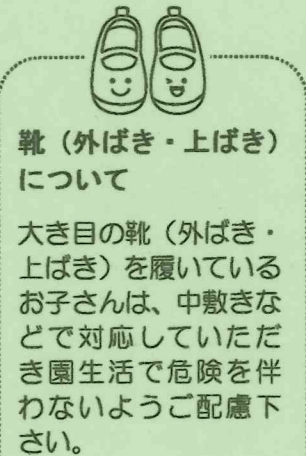 靴（外ばき・上ばき）
について
大き目の靴（外ばき・
上ばき）を履いている
お子さんは、中敷きな
どで対応していただ
き園生活で危険を伴
わないようご配慮下
さい。